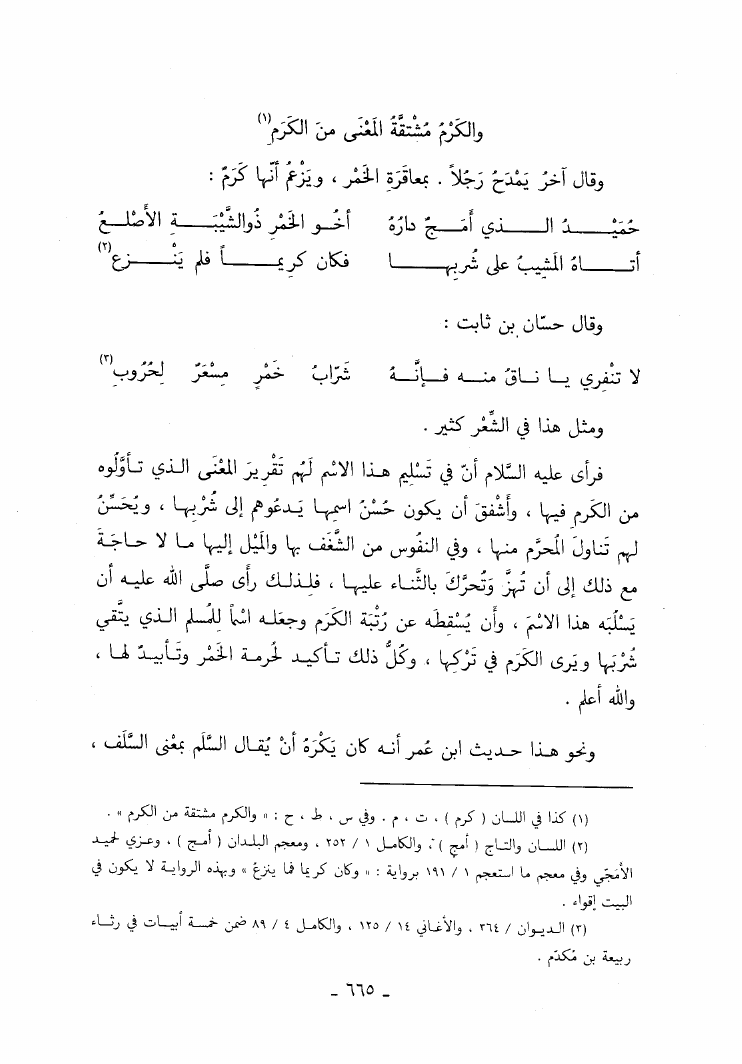 والكَرْمُ مُشْتَقَّةُ المَعْنَى منَ الكَرَمِ(١)
وقال آخرُ يَمْدَحُ رَجُلاً . بمعاقَرَةِ الخَمْر ، ويَزْعُمُ أنّها كَرَمٌ :
حُمَيْـــــدُ الـــــذي أَمَـــجٌ دارُهُ أخُـــو الخَمْرِ ذُوالشَّيْبَـــــةِ الأَصْلَـــعُ
أتـــــاهُ المَشِيبُ على شُرِبهـــــا فكان كريمـــــاً فلم يَنْـــــزِعِ(٢)
وقال حسّان بن ثابت :
لا تنْفِري يـا نـاقُ منـه فـإنَّـهُ شَرّابُ خَمْرٍ مِسْعَرٌ لِحُرُوبِ(٣)
ومثل هذا في الشِّعْر كثير .
فرأى عليه السَّلام أنّ في تَسْلِيم هـذا الاسْمِ لَهُم تَقْرِيرَ المَعْنَى الـذي تَـأوَّلُوه
من الكَرم فيها ، وأَشْفقَ أن يكون حُسْنُ اسمِهـا يَـدعُوهم إلى شُرْبِهـا ، ويُحَسِّنُ
لهم تَناولَ المُحرَّم منها ، وفي النفُوس من الشَّغَف بها والَميْل إليها مـا لا حـاجـةَ
مع ذلك إلى أن تُهزَّ وَتُحرَّكَ بالثَّناء عليهـا ، فلـذلـك رأى صلَّى الله عليـه أن
يَسْلُبَه هذا الاسْمَ ، وأن يُسْقِطَه عن رُتْبَة الكَرَم وجعلـه اسْماً للمُسلم الـذي يتَّقي
شُرْبَها ويَرى الكَرَم في تَرْكِها ، وكُلُّ ذلك تـأكيـد لحُرمـة الخَمْر وتَأبيـدٌ لهـا ،
والله أعلم .
ونحو هـذا حـديث ابن عُمر أنـه كان يَكْرَهُ أنْ يُقـال السَّلَم بمَعْنى السَّلَف ،
(١) كذا في اللسـان ( كرم ) ، ت ، م . وفي س ، ط ، ح : « والكرم مشتقة من الكرم » .
(٢) اللسـان والتـاج ( أمج ) ، والكامل ١ / ٢٥٢ ، ومعجم البلـدان ( أمـج ) ، وعـزي لحميـد
الأمَجّي وفي معجم ما استعجم ١ / ١٩١ برواية : « وكان كريما فما ينزعُ » وبهذه الروايـة لا يكون في
البيت إقواء .
(٣) الـديـوان / ٣٦٤ ، والأغـاني ١٤ / ١٢٥ ، والكامـل ٤ / ٨٩ ضمن خمسة أبيـات في رثـاء
ربيعة بن مُكدّم .
ـ ٦٦٥ ـ